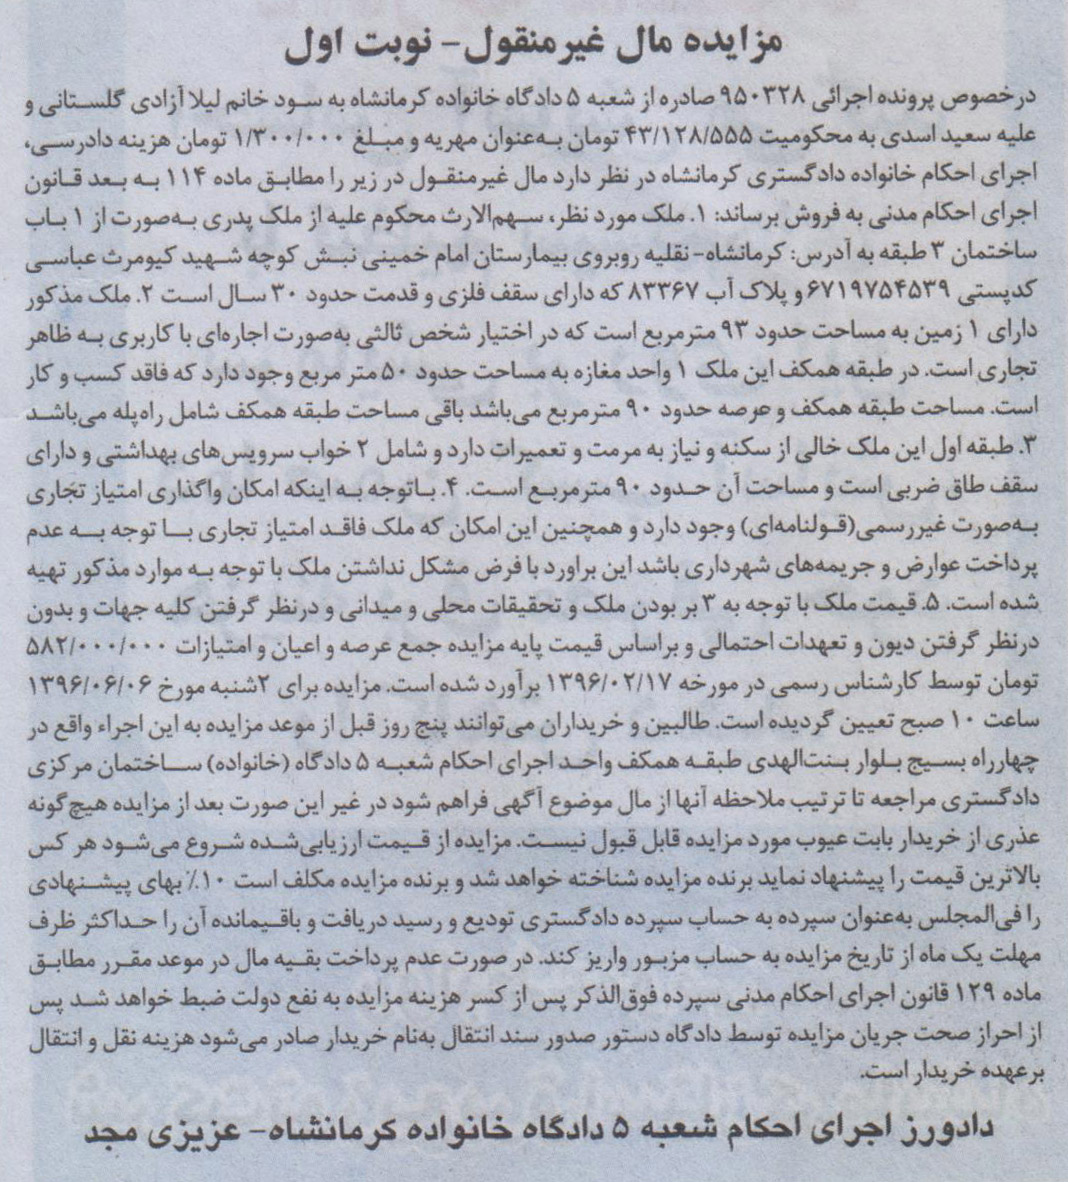 مزایده مال غیرمنقول- نوبت اول
درخصوص پرونده اجرائی ۹۵۰۳۲۸ صادره از شعبه ۵ دادگاه خانواده کرمانشاه به سود خانم لیلا آزادی گلستانی و
علیه سعید اسدی به محکومیت ۴۳/۱۲۸/۵۵۵ تومان به‌عنوان مهریه و مبلغ ۱/۳۰۰/۰۰۰ تومان هزینه دادرسی،
اجرای احکام خانواده دادگستری کرمانشاه در نظر دارد مال غیرمنقول در زیر را مطابق ماده ۱۱۴ به بعد قانون
اجرای احکام مدنی به فروش برساند: ۱. ملک مورد نظر، سهم‌الارث محکوم علیه از ملک پدری به‌صورت از ۱ باب
ساختمان ۳ طبقه به آدرس: کرمانشاه- نقلیه روبروی بیمارستان امام خمینی نبش کوچه شهید کیومرث عباسی
کدپستی ۶۷۱۹۷۵۴۵۳۹ و پلاک آب ۸۳۳۶۷ که دارای سقف فلزی و قدمت حدود ۳۰ سال است ۲. ملک مذکور
دارای ۱ زمین به مساحت حدود ۹۳ مترمربع است که در اختیار شخص ثالثی به‌صورت اجاره‌ای با کاربری به ظاهر
تجاری است. در طبقه همکف این ملک ۱ واحد مغازه به مساحت حدود ۵۰ متر مربع وجود دارد که فاقد کسب و کار
است. مساحت طبقه همکف و عرصه حدود ۹۰ مترمربع می‌باشد باقی مساحت طبقه همکف شامل راه‌پله می‌باشد
۳. طبقه اول این ملک خالی از سکنه و نیاز به مرمت و تعمیرات دارد و شامل ۲ خواب سرویس‌های بهداشتی و دارای
سقف طاق ضربی است و مساحت آن حدود ۹۰ مترمربع است. ۴. باتوجه به اینکه امکان واگذاری امتیاز تجاری
به‌صورت غیررسمی(قولنامه‌ای) وجود دارد و همچنین این امکان که ملک فاقد امتیاز تجاری با توجه به عدم
پرداخت عوارض و جریمه‌های شهرداری باشد این براورد با فرض مشکل نداشتن ملک با توجه به موارد مذکور تهیه
شده است. ۵. قیمت ملک با توجه به ۳ بر بودن ملک و تحقیقات محلی و میدانی و درنظر گرفتن کلیه جهات و بدون
درنظر گرفتن دیون و تعهدات احتمالی و براساس قیمت پایه مزایده جمع عرصه و اعیان و امتیازات ۵۸۲/۰۰۰/۰۰۰
تومان توسط کارشناس رسمی در مورخه ۱۳۹۶/۰۲/۱۷ برآورد شده است. مزایده برای ۲شنبه مورخ ۱۳۹۶/۰۶/۰۶
ساعت ۱۰ صبح تعیین گردیده است. طالبین و خریداران می‌توانند پنج روز قبل از موعد مزایده به این اجراء واقع در
چهارراه بسیج بلوار بنت‌الهدی طبقه همکف واحد اجرای احکام شعبه ۵ دادگاه (خانواده) ساختمان مرکزی
دادگستری مراجعه تا ترتیب ملاحظه آنها از مال موضوع آگهی فراهم شود در غیر این صورت بعد از مزایده هیچ‌گونه
عذری از خریدار بابت عیوب مورد مزایده قابل قبول نیست. مزایده از قیمت ارزیابی‌شده شروع می‌شود هر کس
بالاترین قیمت را پیشنهاد نماید برنده مزایده شناخته خواهد شد و برنده مزایده مکلف است ۱۰٪ بهای پیشنهادی
را فی‌المجلس به‌عنوان سپرده به حساب سپرده دادگستری تودیع و رسید دریافت و باقیمانده آن را حداکثر ظرف
مهلت یک ماه از تاریخ مزایده به حساب مزبور واریز کند. در صورت عدم پرداخت بقیه مال در موعد مقرر مطابق
ماده ۱۲۹ قانون اجرای احکام مدنی سپرده فوق‌الذکر پس از کسر هزینه مزایده به نفع دولت ضبط خواهد شد پس
از احراز صحت جریان مزایده توسط دادگاه دستور صدور سند انتقال به‌نام خریدار صادر می‌شود هزینه نقل و انتقال
برعهده خریدار است.
دادورز اجرای احکام شعبه ۵ دادگاه خانواده کرمانشاه- عزیزی مجد